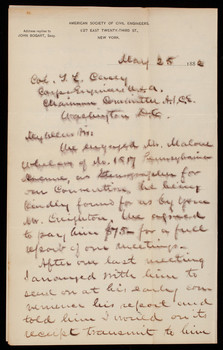 AMERICAN SOCIETY OF CIVIL ENGINEERS
127 EAST TWENTY-THIRD ST.,
NEW YORK.
JOHN BOGART, Secy.
May 25 1882
Col. T. L. Casey
Corps Engineers U.S.A.
Chairman Committee A.S.C.E.
Washington D.C.
My dear Sir:
We engaged Mr. Malone
Wheless of No. 1317 Pennsylvania
Avenue, as Stenographer for
our Convention, he being
kindly found for us by your
Mr. Creighton. We agreed
to pay him $75.- for a full
report of our meetings.
After our last meeting
I arranged with him to
send on at his early con
venience his report and
told him I would on its
receipt transmit to him